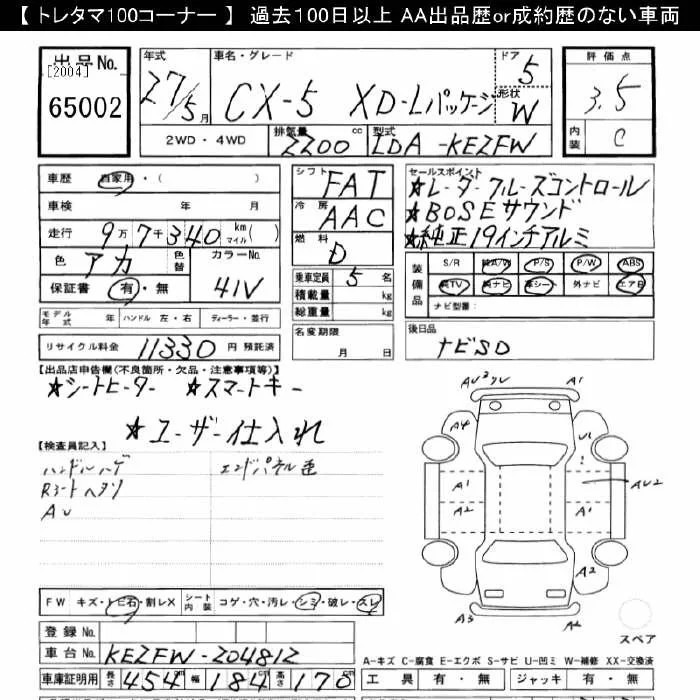 【 トレタマ100コーナー 】 過去100日以上 AA出品歴or成約歴のない車両
出品No.
[2004]
65002
年式
27/5月
車名・グレード
CX-5 XD-Lパッケージ
ドア
5
形状
W
2WD・4WD
排気量
2200 cc
型式
LDA-KE2FW
評価点
3.5
内装
C
車歴 自家用・( )
車検 年 月
走行 9万7千340 km(マイル)
色 アカ 色替
カラーNo.
41V
保証書 有・無
モデル年式 年 ハンドル 左・右 ディーラー・並行
リサイクル料金 11330 円 預託済
シフト FAT
冷房 AAC
燃料 D
乗車定員 5 名
積載量 kg
総重量 kg
名変期限
月 日
セールスポイント
★レーダークルーズコントロール
★BOSEサウンド
★純正19インチアルミ
装備品
S/R 純A/W P/S P/W ABS
純TV 純ナビ 革シート 外ナビ エアB
ナビ型番:
後日品
ナビSD
【出品店申告欄(不良箇所・欠品・注意事項等)】
★シートヒーター ★スマートキー
★ユーザー仕入れ
【検査員記入】
ハンドルハゲ エンドパネル歪
Rシートヘタリ
AU
AU2 A1
A4 U1
A1 A1 AU2
A2 A1
A2
A3 A2
スペア
FW キズ・トビ石・割レX シート内装 コゲ・穴・汚レ・シミ・破レ・スレ
登録No.
車台No. KE2FW-204812
車庫証明用 長さ 454 cm 幅 184 cm 高さ 170 cm
A-キズ C-腐食 E-エクボ S-サビ U-凹ミ W-補修 XX-交換済
工具 有・無 ジャッキ 有・無